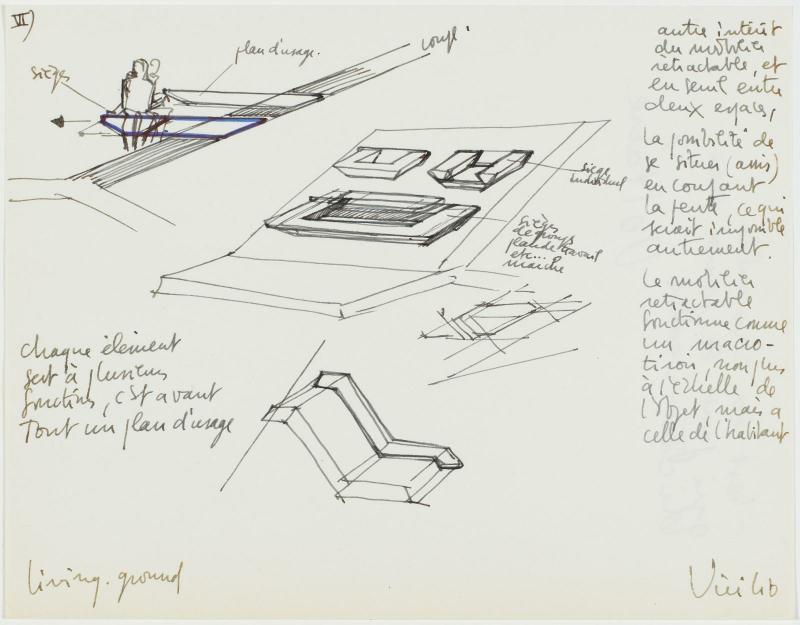 VII)
sièges
plan d'usage.
coupl.
autre intérêt
du mobilier
rétractable, et
en seuil entre
deux espaces,
la possibilité de
se situer (assis)
en coupant
la pente, ce qui
serait impossible
autrement.
Le mobilier
rétractable
fonctionne comme
un macro-
tiroir, non plus
à l'échelle de
l'objet, mais a
celle de l'habitant
siège
individuel
sièges
de groupe
plan de travail
etc...
marche
chaque élément
sert à plusieurs
fonctions, c'est avant
Tout un plan d'usage
living. ground
Virilio